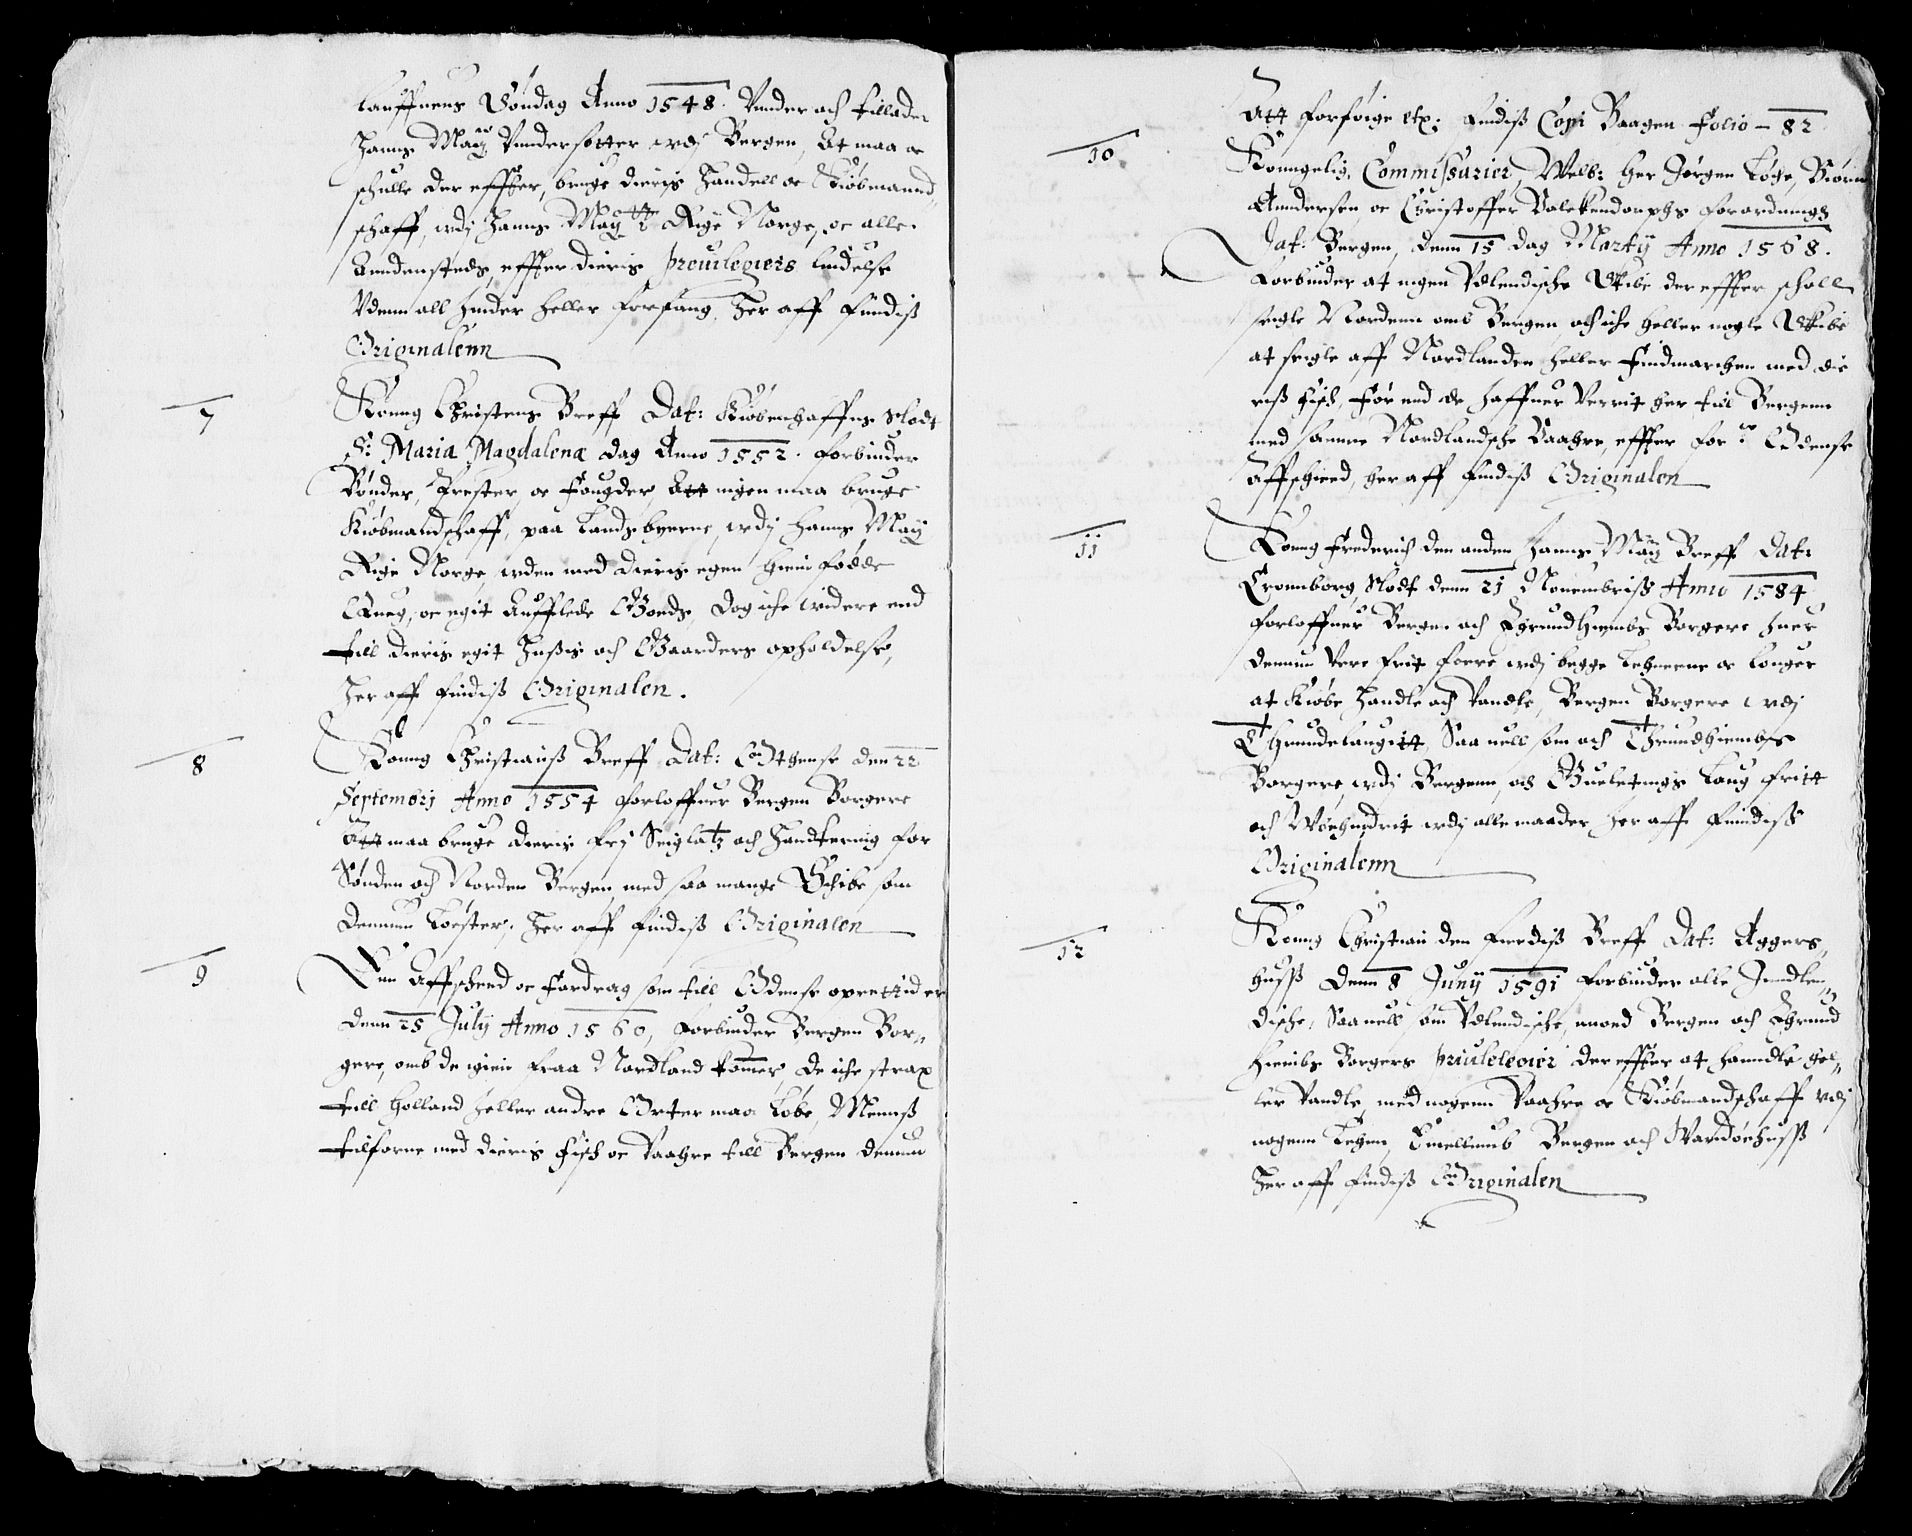 lauffuens Søndag Anno 1548. Vnder och tillader
Hanns Maytz Vndersotter wdj Bergen, At maa oc
schulle der effter, bruge dieris Handell oc Kiøbmannd„
schaff, wdj Hanns Maytt Rige Norge, oc alle
Anndensteds, effter dieris preuilegiers liudelse
Vdenn all hinder heller forfang, Her aff findiß
Originalenn
7
Konng Christens Breff Dat: Kiøbenhaffns slodt
S: Maria Magdalenæ dag Anno 1552. forbinder
Bønder, Prester, oc Fougder Att ingen maa bruge
Kiøbmandschaff, paa Landzbyerne, wdj Hanns May
Rige Norge, wden med dieris egen hiem fødde
Queg, oc egit Aufflede Goeds, dog iche widere end
till dieris egit Hußis och Gaarders opholdelse,
Her aff findiß Originalen.
8
Konng Christianß Breff Dat: Othense den 22
Septembrj Anno 1554 forloffuer Bergen Borgere
Att maa bruge dieris frj Seiglatz och Handtering for
Sønden och Norden Bergen, med saa mange Schibe som
dennum løster, Her aff findiß Originalen
9
Een Affscheed oc fordrag som till Odense oprettid er
denn 25 Julij Anno 1560, forbinder Bergen Bor„
gere, omb de igien fraa Nordland kommer, de iche strax
till Holland heller andre Orter maa løbe, Mennß
tilforne med dieris fisch oc Vaahre till Bergen dennum
Att forføige etx: findiß Copi Baagen folio – 82
10
Konngelig. Commissarier, Welb: Her Jørgen Løge, Biørn
Andersen oc Christoffer Valckendorphs forordningh
Dat: Bergen, denn 15 dag Martij Anno 1568.
Forbinder at ingen Vdlendische Skibe der effter schall
seigle Nordenn omb Bergen och iche heller nogle Skibe
at seigle aff Nordlanden heller Findmarchen med die
riß fisch, før end de haffuer Verrit her till Bergenn
med samme Nordlandsche Vaahre, effter for.ne Odense
Affscheed, her aff findiß Originalen
11
Konng Frederich den anden Hanns Maytz Breff Dat:
Cronnborg Slodt denn 21 Nouembriß Anno 1584
forloffuer Bergen och Thrundhiembs Borgere huer
dennum Vere frit foere wdj begge Lehnerne oc Lauger
at Kiøbe Handle och Vandle, Bergen Borgere wdj
Thrundelaugitt, Saa uell som och Thrundhiembs
Borgere wdj Bergenn, och Guletings Laug fritt
och Wbehindrit wdj alle maader Her aff findiß
Originalenn
12
Konng Christian den fierdiß Breff Dat: Aggers„
huß denn 8 Junij 1591 forbinder alle Inndlen„
dische, Saa uell som Vdlendische, imod Bergen och Thrund
hiembs Borgers priuilegier der effter at handle hel„
ler Vandle, med nogenn Vaahre oc Kiøbmandschaff vdj
nogenn Legen, Emellumb Bergen och Wardøehuß
Her aff findiß Originalen